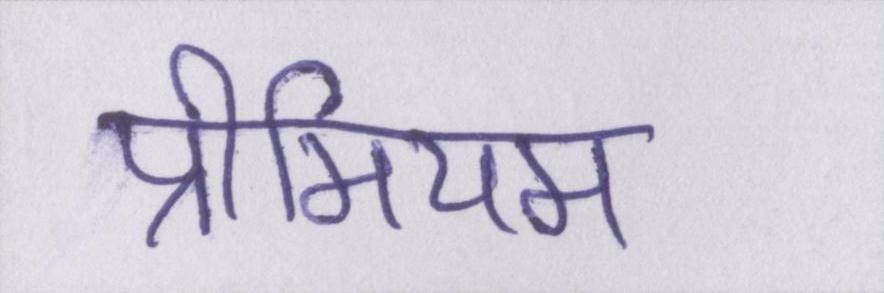 प्रीमियम